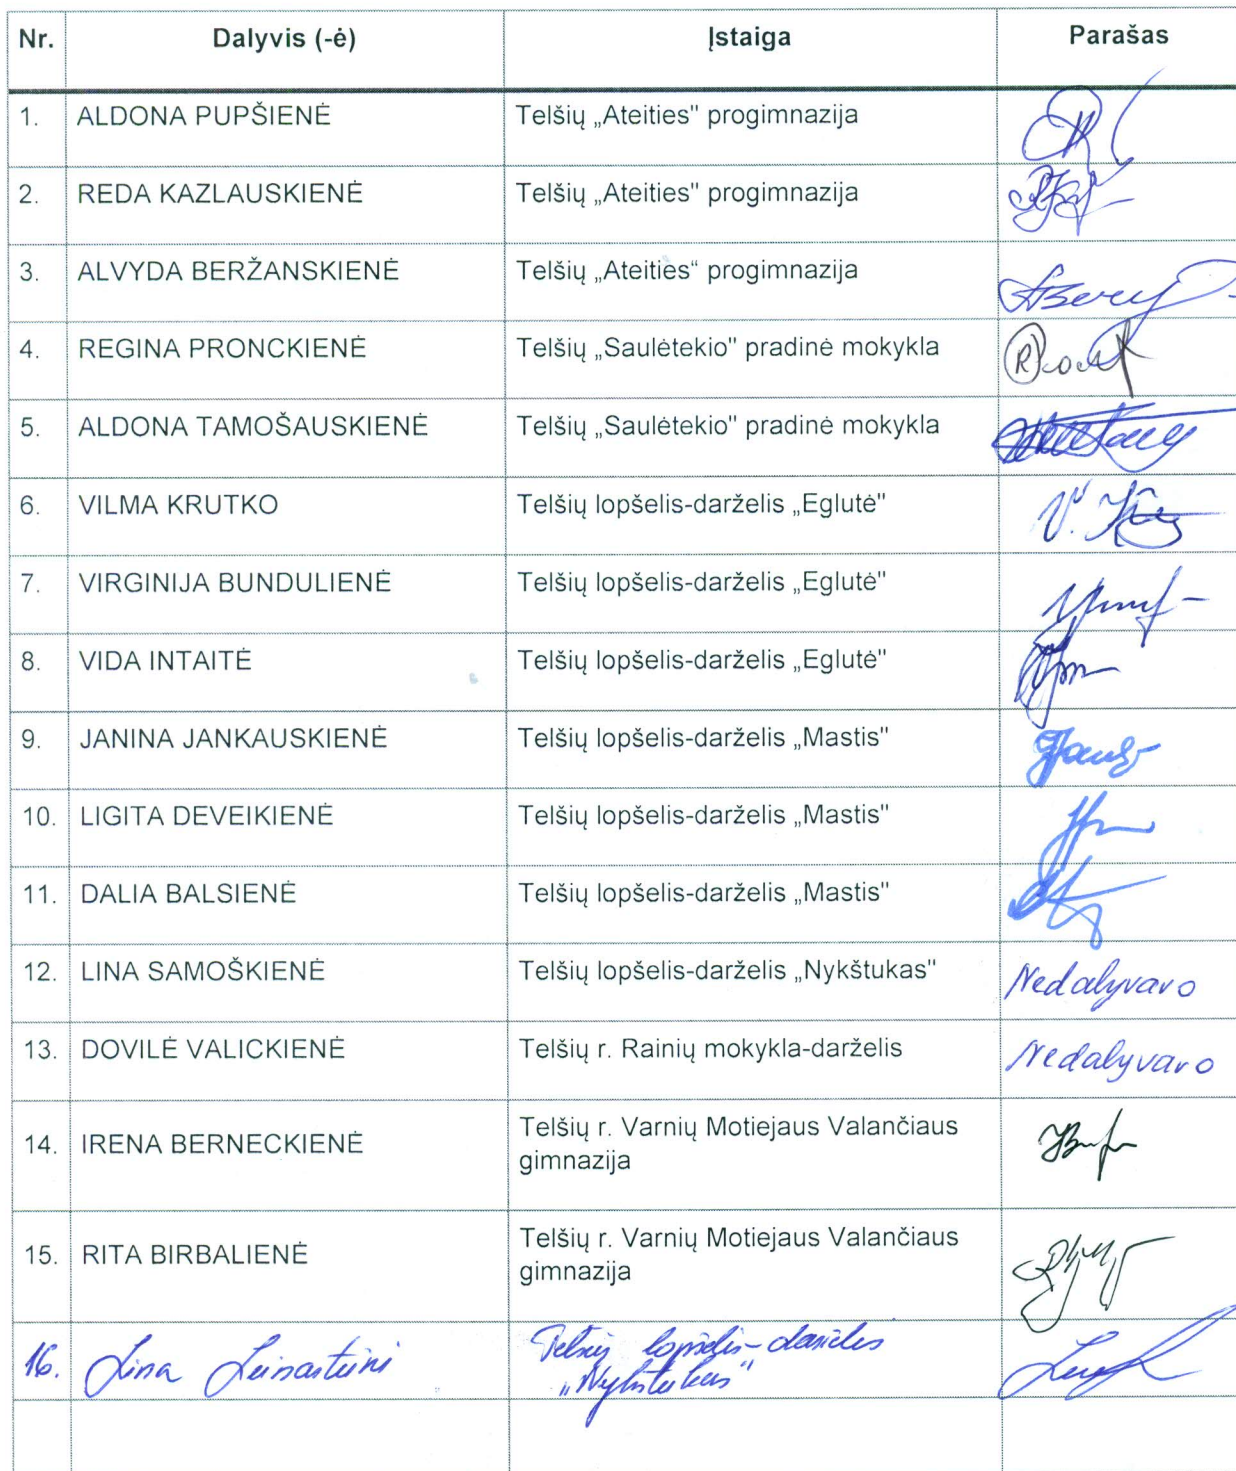 Nr. Dalyvis (-ė) Įstaiga Parašas
1. ALDONA PUPŠIENĖ Telšių „Ateities" progimnazija
2. REDA KAZLAUSKIENĖ Telšių „Ateities" progimnazija
3. ALVYDA BERŽANSKIENĖ Telšių „Ateities“ progimnazija
4. REGINA PRONCKIENĖ Telšių „Saulėtekio" pradinė mokykla
5. ALDONA TAMOŠAUSKIENĖ Telšių „Saulėtekio" pradinė mokykla
6. VILMA KRUTKO Telšių lopšelis-darželis „Eglutė"
7. VIRGINIJA BUNDULIENĖ Telšių lopšelis-darželis „Eglutė"
8. VIDA INTAITĖ Telšių lopšelis-darželis „Eglutė"
9. JANINA JANKAUSKIENĖ Telšių lopšelis-darželis „Mastis"
10. LIGITA DEVEIKIENĖ Telšių lopšelis-darželis „Mastis"
11. DALIA BALSIENĖ Telšių lopšelis-darželis „Mastis"
12. LINA SAMOŠKIENĖ Telšių lopšelis-darželis „Nykštukas" Nedalyvavo
13. DOVILĖ VALICKIENĖ Telšių r. Rainių mokykla-darželis Nedalyvavo
14. IRENA BERNECKIENĖ Telšių r. Varnių Motiejaus Valančiaus
gimnazija
15. RITA BIRBALIENĖ Telšių r. Varnių Motiejaus Valančiaus
gimnazija
16. Lina Telšių lopšelis-darželis
„Nykštukas"